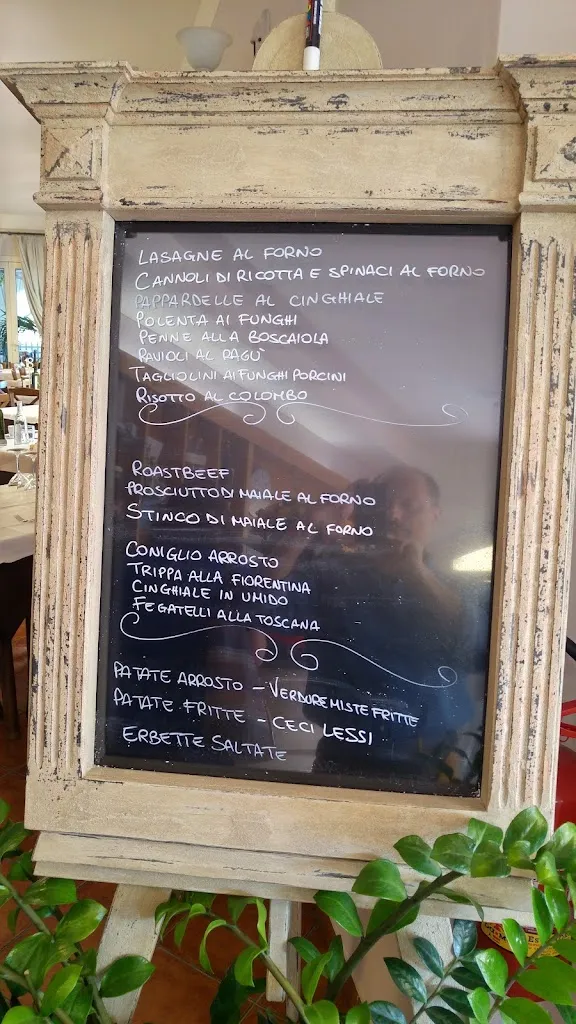 LASAGNE AL FORNO
CANNOLI DI RICOTTA E SPINACI AL FORNO
PAPPARDELLE AL CINGHIALE
POLENTA AI FUNGHI
PENNE ALLA BOSCAIOLA
RAVIOLI AL RAGU'
TAGLIOLINI AI FUNGHI PORCINI
RISOTTO AL COLOMBO
ROASTBEEF
PROSCIUTTO DI MAIALE AL FORNO
STINCO DI MAIALE AL FORNO
CONIGLIO ARROSTO
TRIPPA ALLA FIORENTINA
CINGHIALE IN UMIDO
FEGATELLI ALLA TOSCANA
PATATE ARROSTO - VERDURE MISTE FRITTE
PATATE FRITTE - CECI LESSI
ERBETTE SALTATE